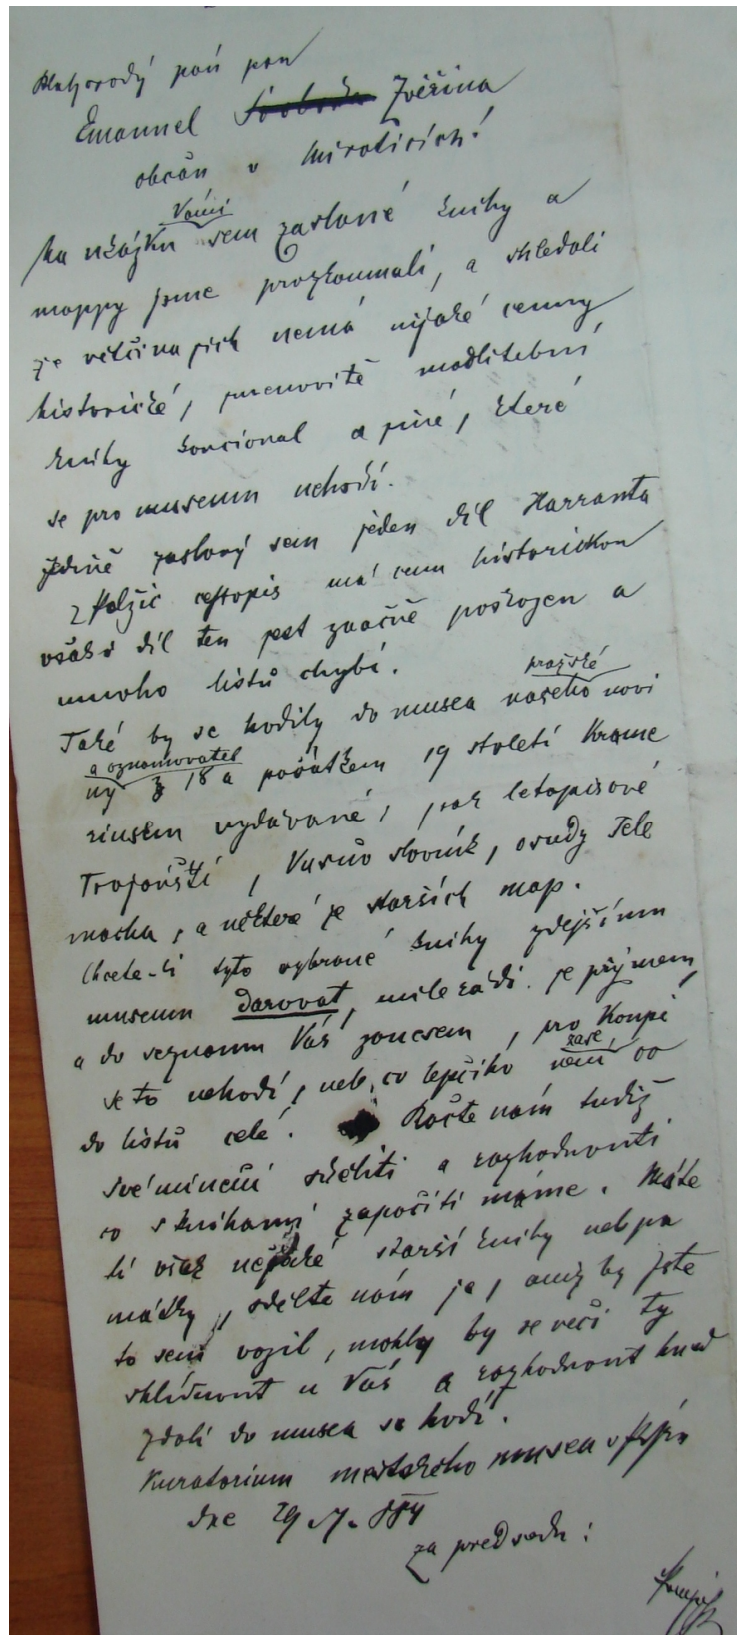 Blahorodý pán pan
Emanuel Svoboda Zvěřina
občan v Miroticích!
Vámi
Na ukázku sem zaslané knihy a
mappy jsme prozkoumali, a shledali
že větčina jich nemá nijaké cenny
historické, jmenovitě modlitební
knihy koncional a jiné, které
se pro museum nehodí.
Jedině zaslaný sem jeden díl Harranta
z Polžic cestopis má cenu historickou
však díl ten jest značně poškozen a
mnoho listů chybí.
pražské
Také by se hodily do musea našeho novi
a oznamovatel
ny z 18 a počátkem 19 století Krame
riusem vydávané, jak letopisové
Trojánští, Vusův slovník, osudy Tele
macha, a některé ze starších map.
Chcete-li tyto vybrané knihy zdejšímu
museum darovat, mile rádi je přijmem,
a do seznamu Vás zanesem, pro koupi
zase
se to nehodí, neb co lepčího není co
do listů celé. Račte nám tudíž
své mínění sděliti a rozhodnouti
co s knihami započíti máme. Máte
li však nějaké starší knihy neb pa
mátky, sdělte nám je, aniž by jste
to sem vozil, mohly by se věci ty
shlídnout u Vás a rozhodnout hned
zdali do musea se hodí.
Kuratorium mestského musea v Písku
dne 29. 7. 884
za předsedu: